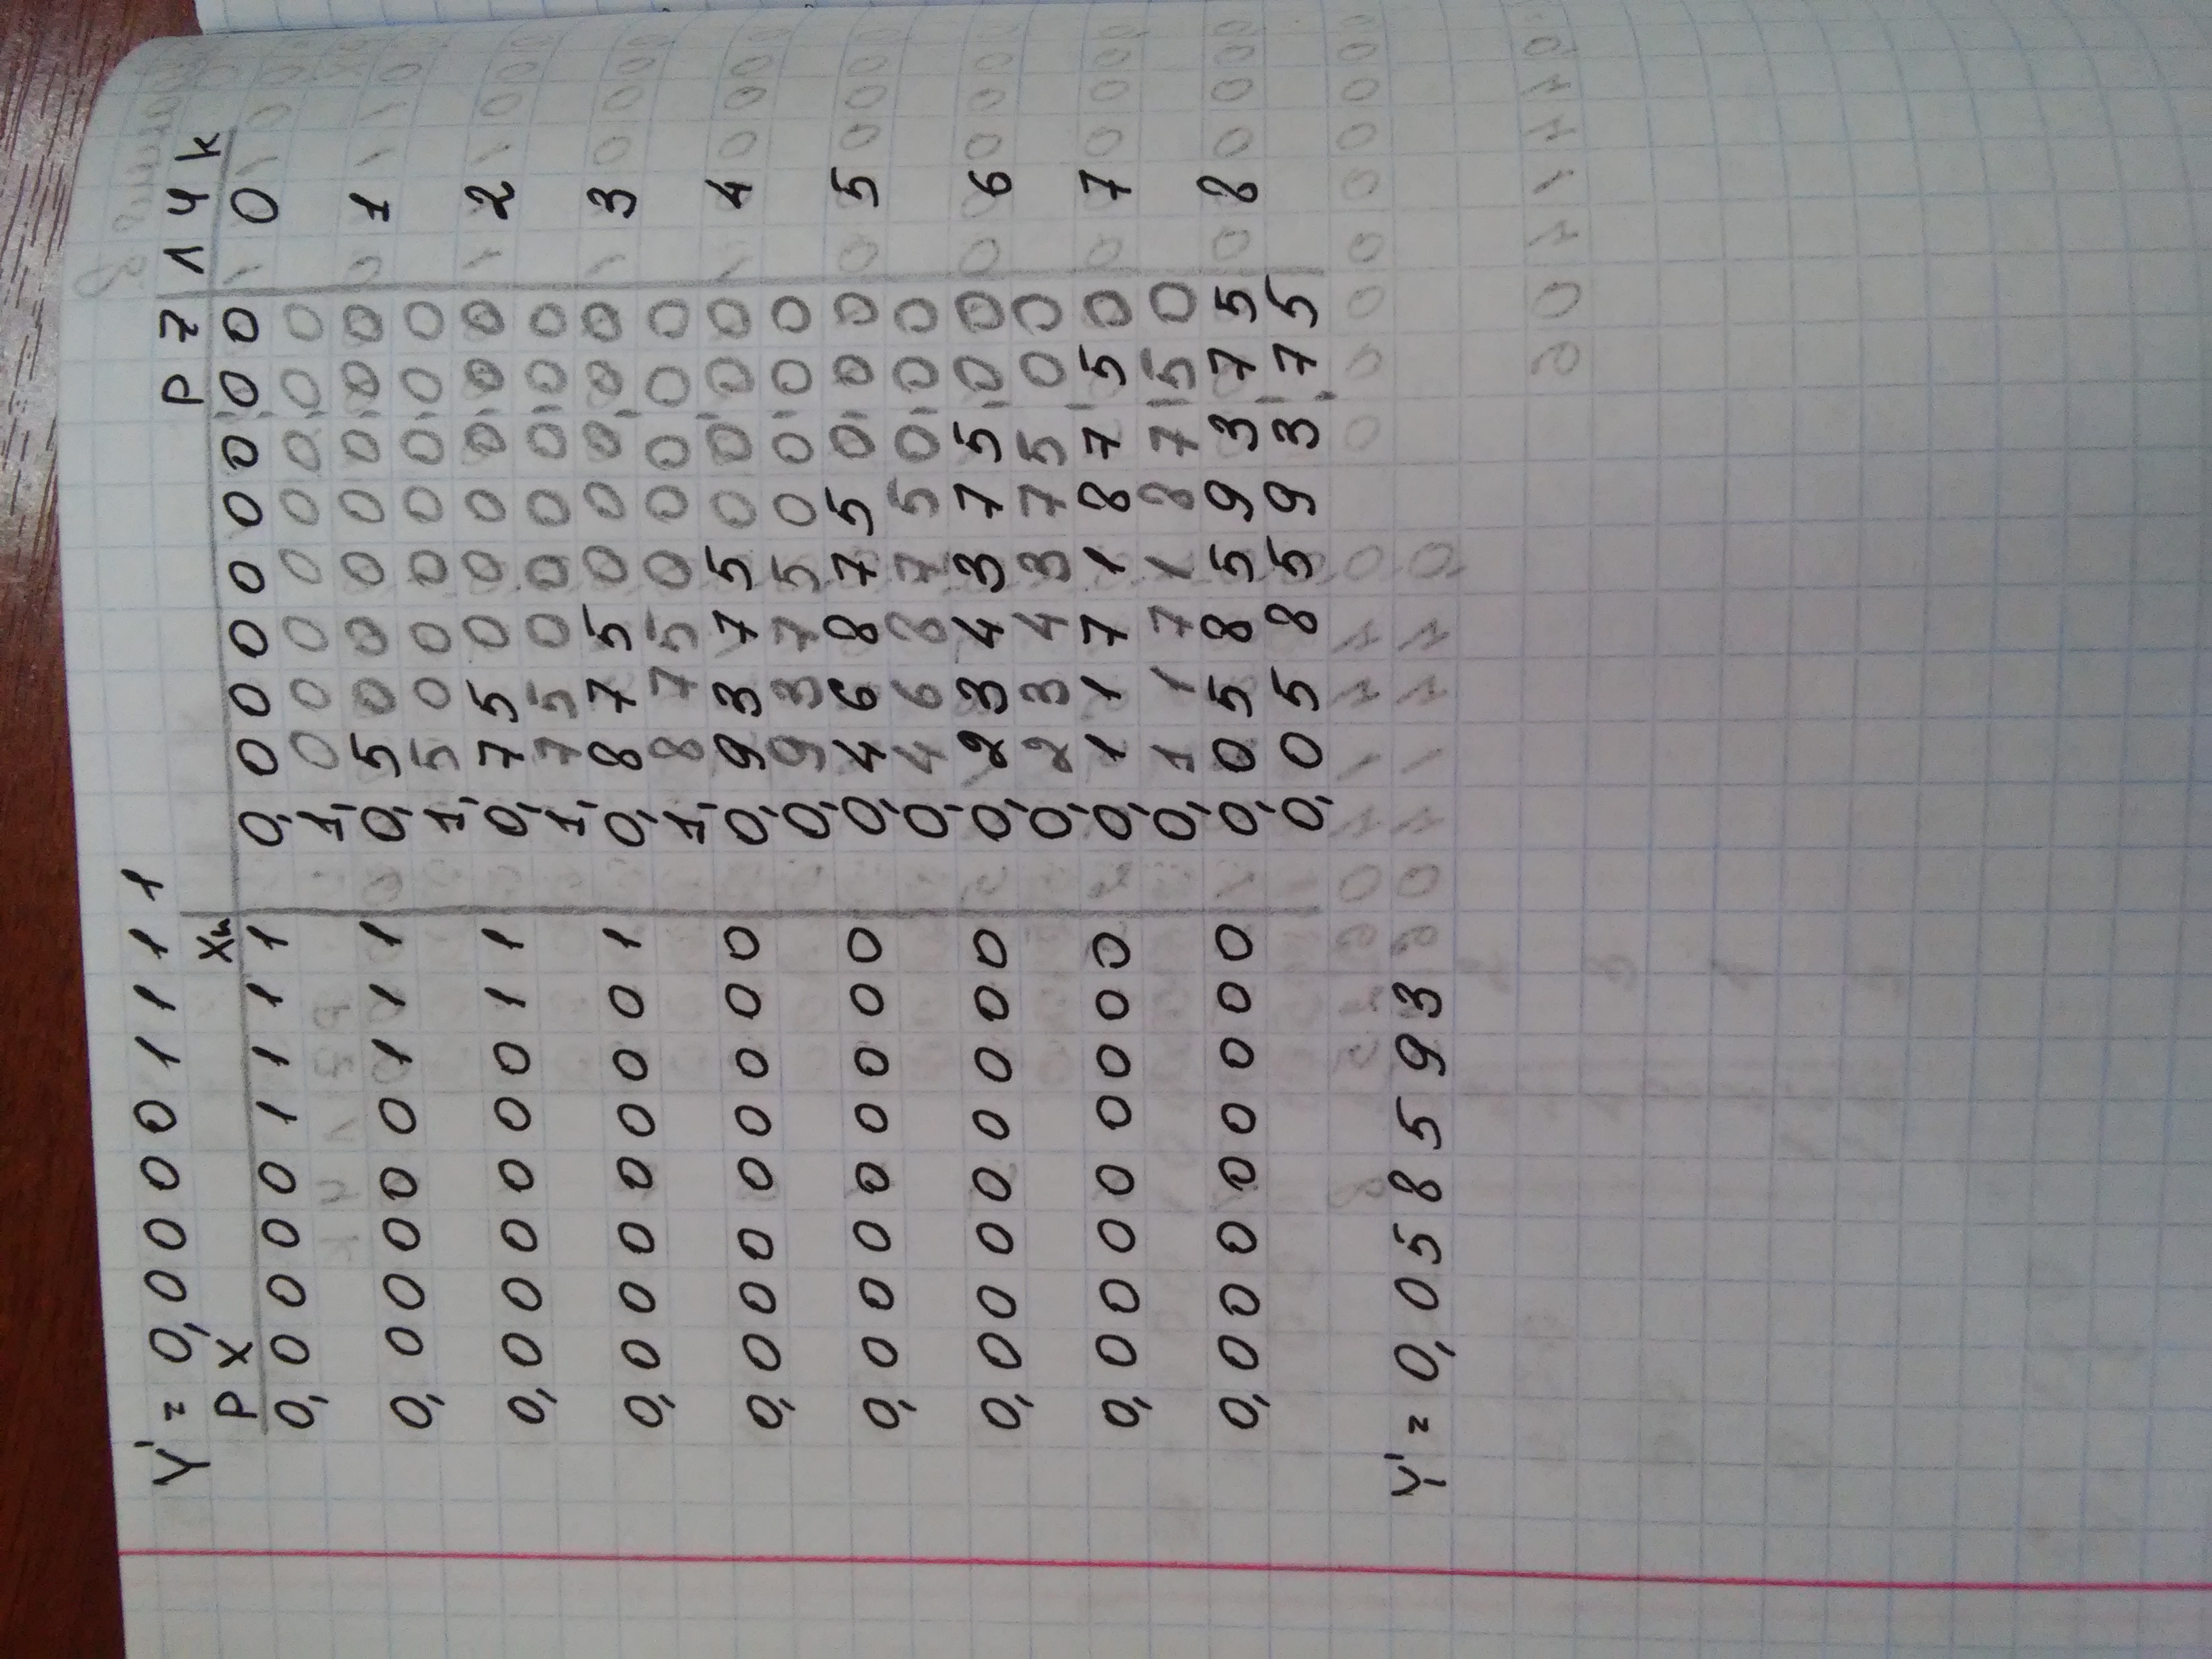 Y' = 0,00001111
PX Xn PZ 1 Ч k
0,00001111 0,00000000 0
1,00000000
0,00000111 0,50000000 1
1,50000000
0,00000011 0,75000000 2
1,75000000
0,00000001 0,87500000 3
1,87500000
0,00000000 0,93750000 4
0,93750000
0,00000000 0,46875000 5
0,46875000
0,00000000 0,23437500 6
0,23437500
0,00000000 0,11718750 7
0,11718750
0,00000000 0,05859375 8
0,05859375
Y' = 0,058593